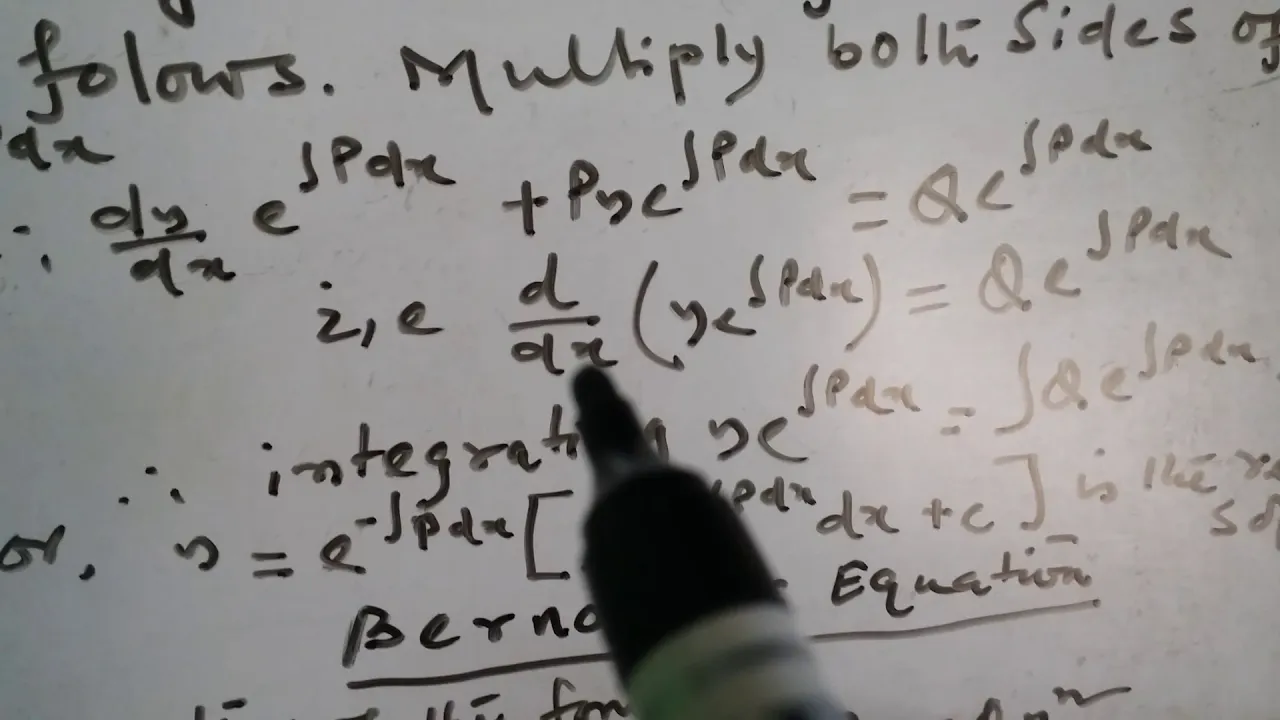 folows. Multiply both Sides of
dx
∴ dy/dx e^∫Pdx + Pye^∫Pdx = Qe^∫Pdx
i,e d/dx (ye^∫Pdx) = Qe^∫Pdx
∴ integrating ye^∫Pdx = ∫Qe^∫Pdx
or, y = e^-∫Pdx [ Pdx dx + c ] is the
Equation
the